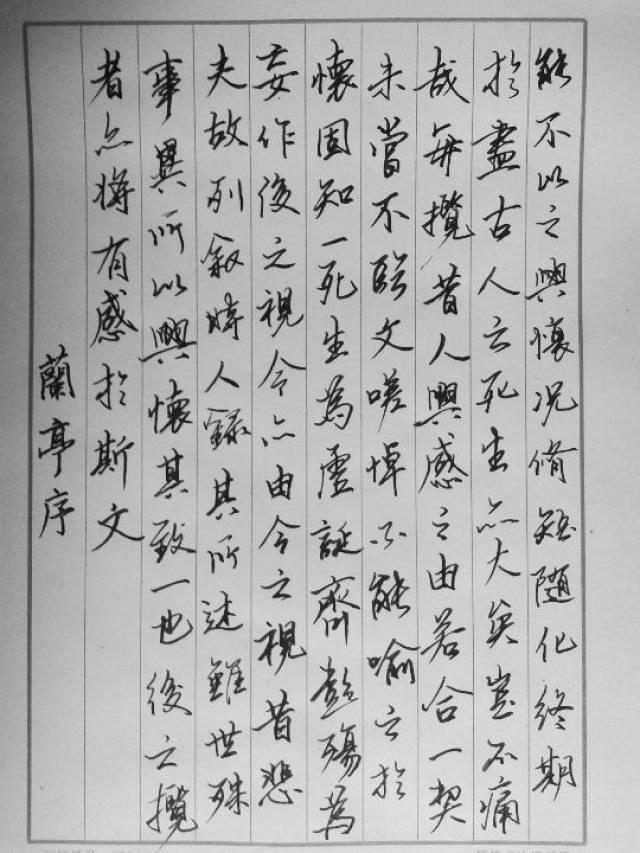 能不以之興懷况脩短随化終期
於盡古人云死生亦大矣豈不痛
哉每攬昔人興感之由若合一契
未嘗不臨文嗟悼不能喻之於
懷固知一死生為虛誕齊彭殤為
妄作後之視今亦由今之視昔悲
夫故列叙時人錄其所述雖世殊
事異所以興懷其致一也後之攬
者亦将有感於斯文
蘭亭序